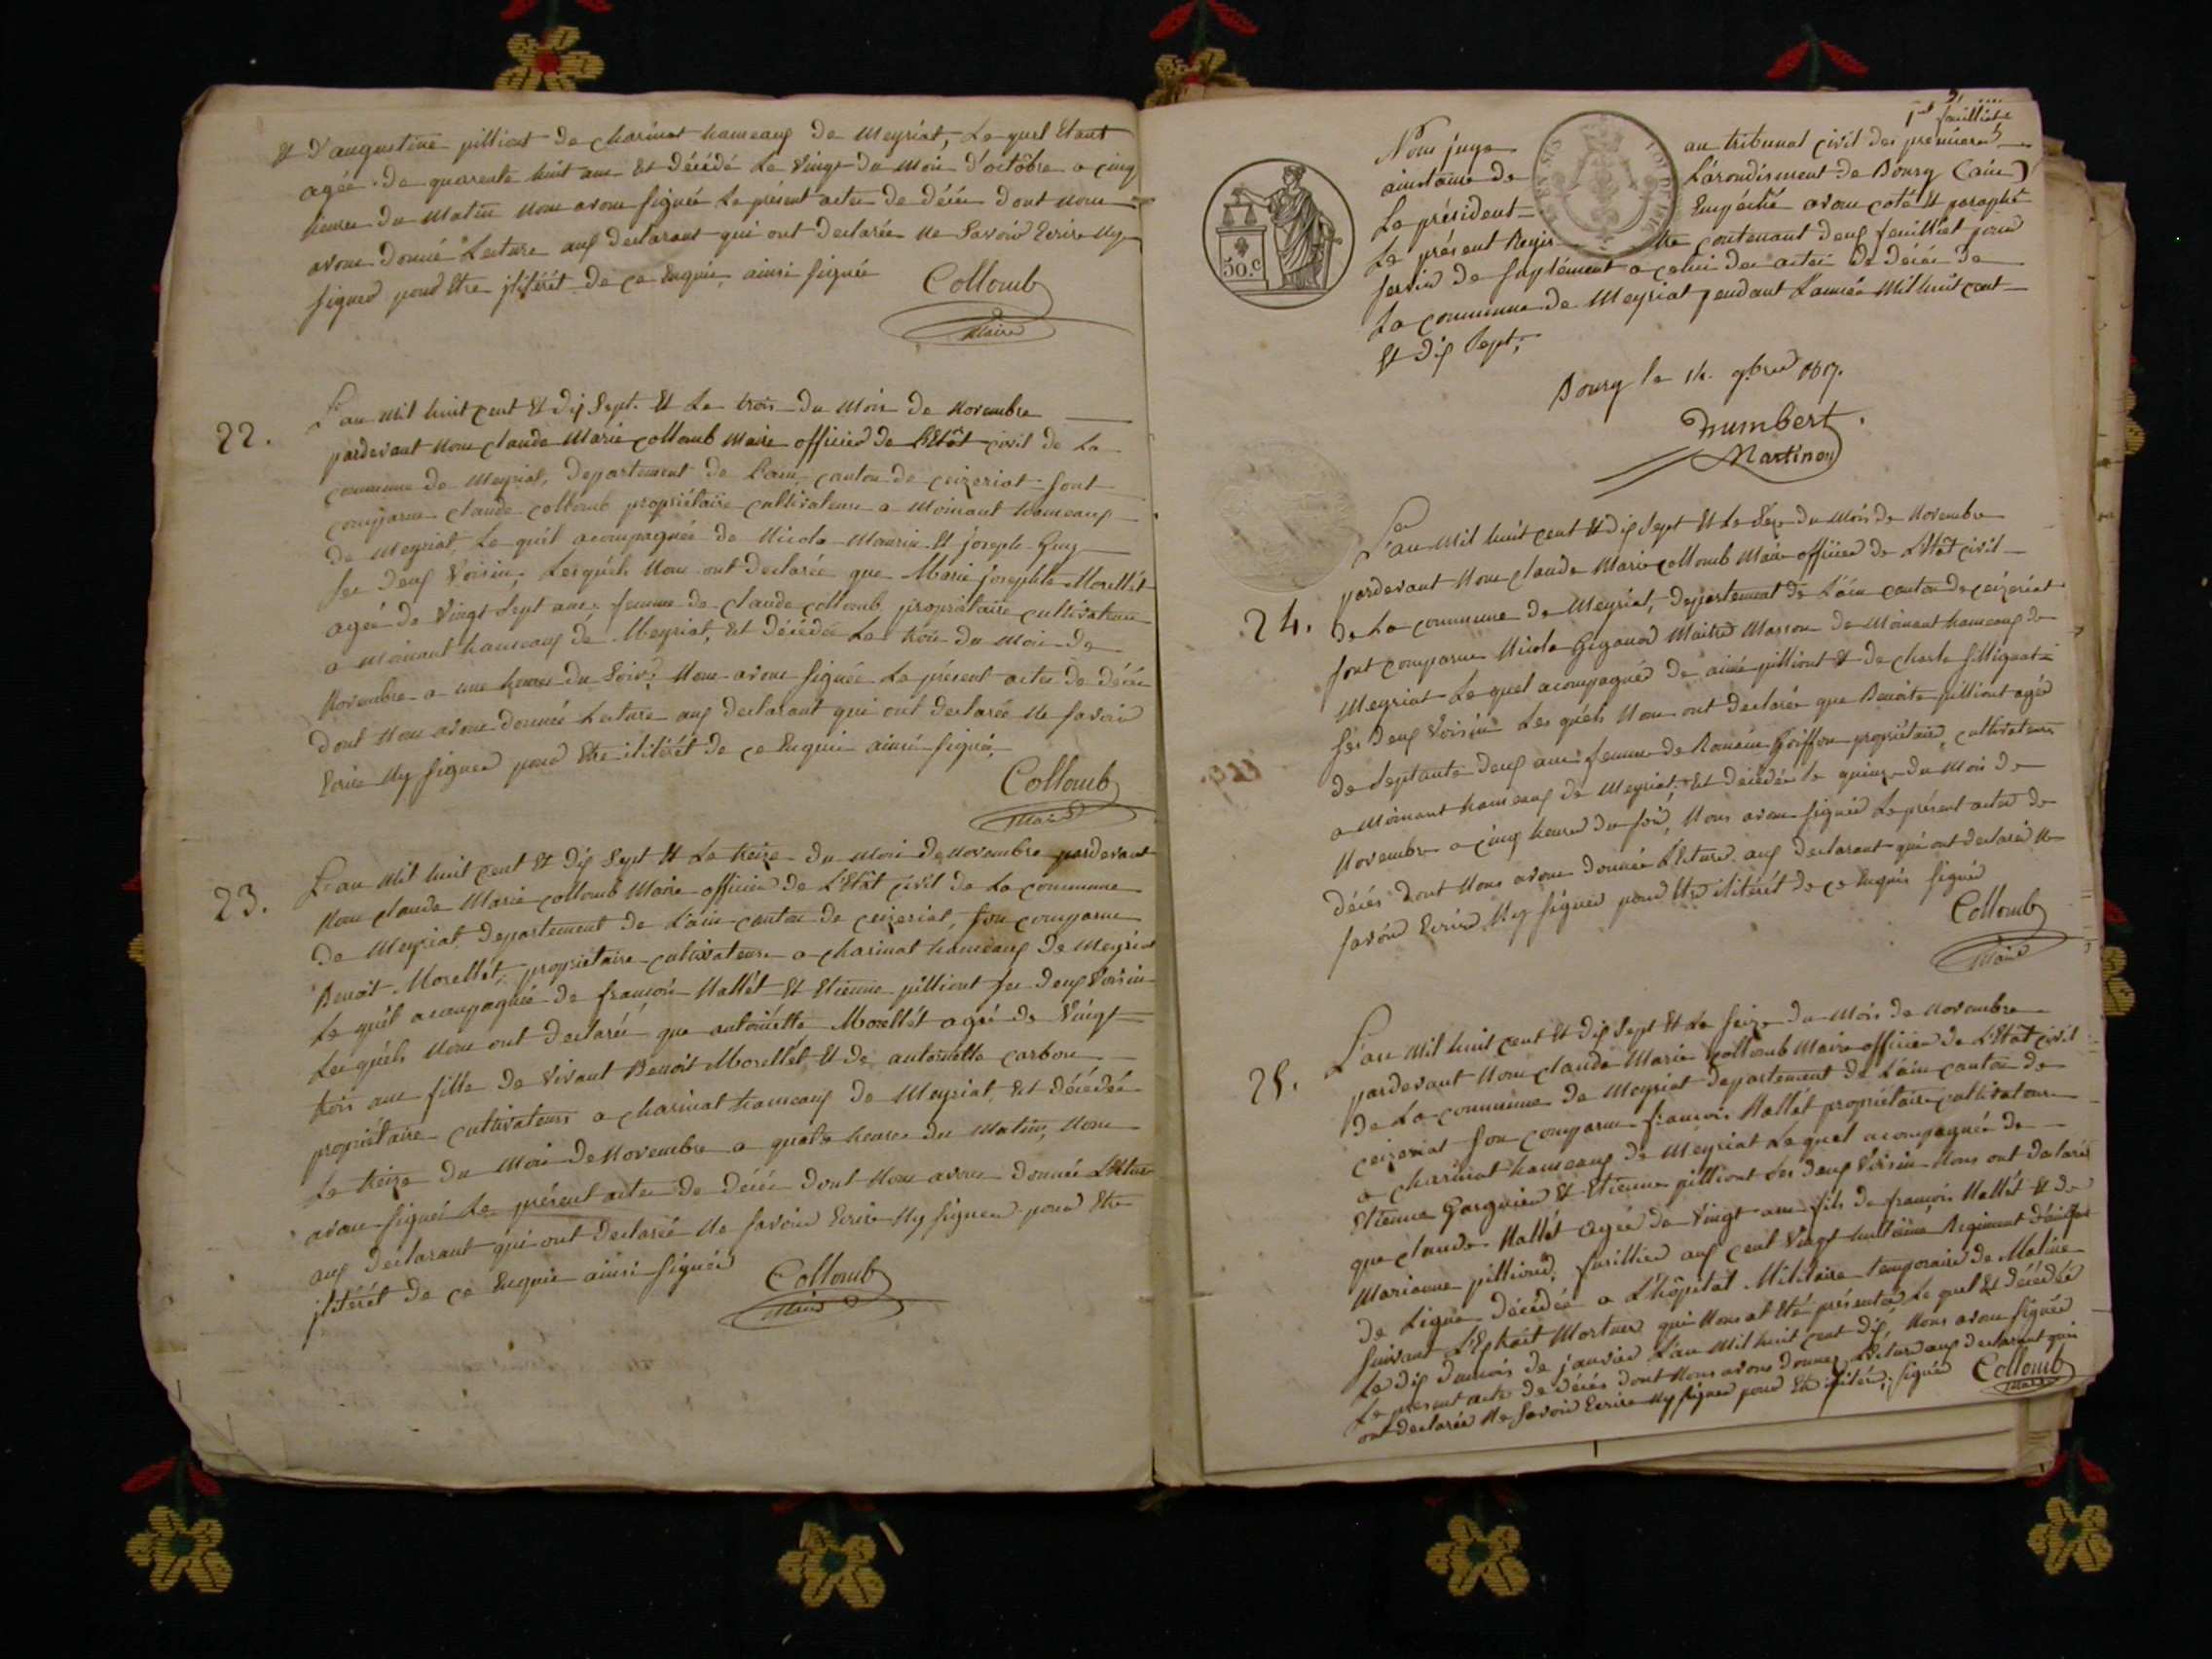 Et d'augustine pilliont de charinat hameaux de Meyriat, Le quel Etant
agée de quarente huit ans Est décédé Le vingt du Mois d'octobre a cinq
heures du Matin Nous avons signée Le présent actes de décés dont nous
avons donné Lecture aux declarant qui ont declarée Ne Savoir Ecrire Ny
signer pour Etre ilitérét de ce Enquis, ainsi signée
Collomb
Maire
22.
L'an Mil huit cent Et dix Sept. Et Le trois du Mois de Novembre
pardevant Nous claude Marie collomb Maire officier de L'Etât civil de La
commune de Meyriat, Departement de L'ain, canton de ceizeriat sont
comparus claude collomb propriétaire cultivateurs a Moinant hameaux
de Meyriat, Le quél acompagnée de Nicola Maurin Et joseph Guy
ses deux Voisin, Lesquéls Nous ont declarée que Marie josephte Morellét
agée de Vingt Sept ans, femme de claude collomb propriétaire cultivateur
a Moinant hameaux de Meyriat, Est décédée Le trois du Mois de
Novembre a une heures du Soir, Nous avons signée Le présent actes de décés
dont Nous avons donnée Lecture aux declarant qui ont declarée Ne savoir
Ecrire Ny signer pour Etre ilitérét de ce Enquis ainsi signée
Collomb
Maire
23.
L'an Mil huit cent Et dix Sept Et Le treize du Mois de Novembre pardevant
Nous claude Marie collomb Maire officier de L'Etât civil de La commune
de Meyriat, Departement de L'ain canton de ceizeriat, son comparus
Benoit Morellét, propriétaire cultivateurs a charinat hameaux de Meyriat
Le quél acompagnée de françois Mallét Et Etienne pilliont ses deux Voisin
Lesquéls Nous ont declarée que antoinétte Morellét agée de Vingt
trois ans fille de Vivant Benoit Morellét Et de antoinette carbon
propriétaire cultivateurs a charinat hameaux de Meyriat, Est décédée
Le treize du Mois de Novembre a quatre heures du Matin, Nous
avons signée Le présent actes de décés dont Nous avons donnée Lecture
aux declarant qui ont declarée Ne savoir Ecrire Ny signer pour Etre
ilitérét de ce Enquis ainsi signée
Collomb
Maire
1er feuillet
Nous juge au tribunal civil des premieres
ainstance de L'arondisment de Bourg (ain)
Le président Empéché avons coté Et paraphé
Le présent Regis tre contenant deux feuillet pour
servir de suplément a celui des actes de décés de
La commune de Meyriat pendant L'année Mil huit cent
Et dix Sept;
50.c
Bourg le 14. 9bre 1817.
Martinon
24.
L'an Mil huit cent Et dix Sept Et Le Seze du Mois de Novembre
pardevant Nous claude Marie collomb Maire officier de L'Etât civil
de La commune de Meyriat, Departement de L'ain canton de ceizeriat
sont comparus Nicola Maitre Masson de Moinant hameaux de
Meyriat Le quel acompagnée de aimé pilliont Et de charle
ses deux Voisin Les quéls Nous ont declarée que Benoite pilliont agée
de Septante deux ans femme de Romain Goiffon propriétaire cultivateurs
a Moinant hameaux de Meyriat, Est décédée Le quinze du Mois de
Novembre a cinq heures du soir, Nous avons signée Le présent actes de
décés dont Nous avons donnée Lecture aux declarant qui ont declarée Ne
savoir Ecrire, Ny signer pour Etre ilitérét de ce Enquis signée
Collomb
Maire
25.
L'an Mil huit cent Et dix Sept Et Le seize du Mois de Novembre
pardevant Nous claude Marie collomb Maire officier de L'Etât civil
de La commune de Meyriat departement de L'ain canton de
ceizeriat son comparus françois Mallét propriétaire cultivateurs
a charinat hameaux de Meyriat Le quel acompagnée de
Etienne Et Etienne pilliont Ses deux Voisin Nous ont declarée
que claude Mallét agée de Vingt ans fils de françois Mallét Et de
Marianne fusillier aux cent Vingt huitième Regiment
de Ligne décédée a L'hôpital Militaire temporaire de Maline
suivant L'Extrait Mortuer qui Nous at Eté présenté, Le quel Est décédée
Le dix du mois de janvier L'an Mil huit cent dix, Nous avons signée
Le present acte de décés dont Nous avons donnez Lecture aux declarant qui
ont declarée Ne Savoir Ecrire Ny signer pour Etre signée
Collomb
Maire